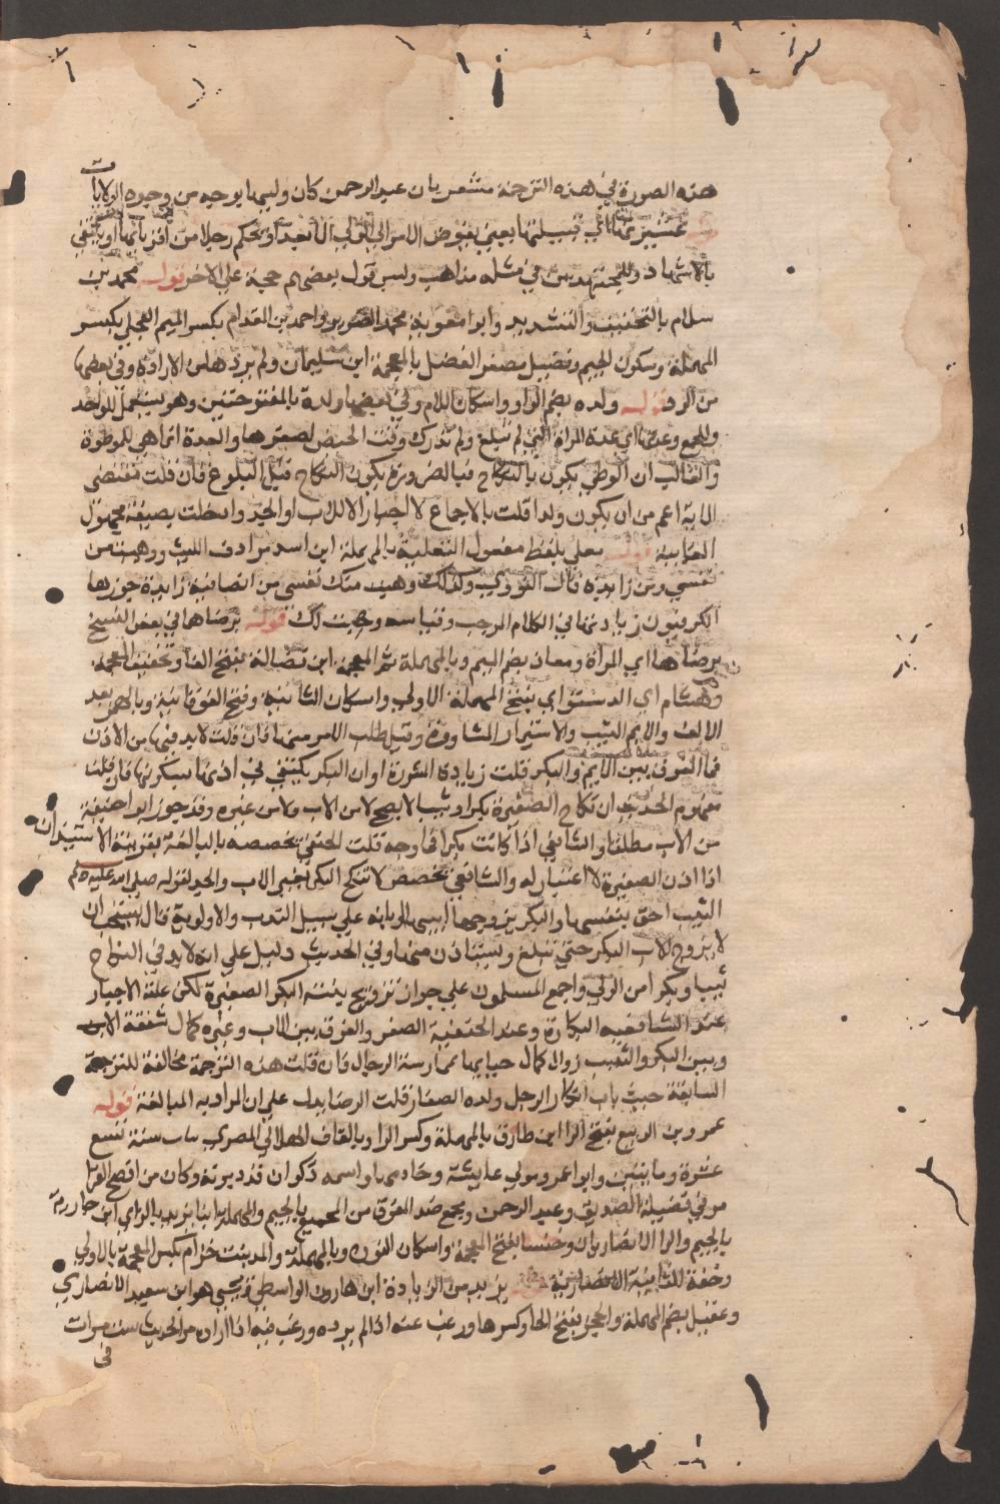 هذه الصورة في هذه الترجمة مشعر بان عبد الرحمن كان وليها بوجه من وجوه الولايات
عشيرتها اي قبيلتها يعني يفوض الامر الى الولي الابعد او يحكم رجلا من اقربائها او يكتفي
بالاشهاد وللمجتهدين في مثله مذاهب وليس قول بعضهم حجة على الاخر قوله محمد بن
سلام بالتخفيف والتشديد وابو معوية محمد الضرير واحمد بن المقدام بكسر الميم العجلي بكسر
المهملة وسكون الجيم وفضيل مصغر الفضل بالمعجمة ابن سليمان ولم يردها من الارادة وفي بعضها
من الرد قوله ولده بضم الواو واسكان اللام وفي بعضها ولده بالمفتوحتين وهو يستعمل للواحد
والجمع وعدتها اي عدة المراة التي لم تبلغ ولم تدرك وقت الحيض لصغرها والعدة انما هي للموطوة
والغالب ان الوطي يكون بالنكاح فبالضرورة يكون النكاح قبل البلوغ فان قلت مقتضى
الاية اعم من ان يكون ولدا قلت بالاجماع لا اجبار الا للاب او الجد وادخلت بصيغة مجهول
الغايبة قوله معلى بلفظ مفعول التعلية بالمهملة ابن اسد مرادف الليث ووهبت من
نفسي ومن زايدة قال النووي ولذلك وهبت منك نفسي من ايضا فيه زايدة جوزها
الكوفيون زيادتها في الكلام الموجب وقياسه وهبت لك قوله برضاها في بعض النسخ
برضاهما اي المراة ومعاذ بضم الميم وبالمهملة ثم المعجمة ابن فضالة بفتح الفا وتخفيف المعجمة
وهشام اي الدستوايي بفتح المهملة الاولى واسكان الثانية وفتح الفوقانية وبالهمز بعد
الالف والايم الثيب والاستيمار المشاورة وقيل طلب الامر منها فان قلت لا بد فيها من الاذن
فما الفرق بين الايم والبكر قلت زيادة المشورة او ان البكر يكتفي في اذنها بسكوتها فان قلت
مفهوم الحديث ان نكاح الصغيرة بكرا وثيبا لا يصح لا من الاب ولا من غيره وقد جوز ابو حنيفة
من الاب مطلقا والشافعي اذا كانت بكرا فما وجهه قلت الحنفي يخصصه بالبالغة بقرينة الاستيذان
اذا اذن الصغيرة لا اعتبار له والشافعي يخصص لا تنكح البكر بغير الاب والجد لقوله صلى الله عليه وسلم
الثيب احق بنفسها والبكر يزوجها ابوها على سبيل الندب والاولوية قال يستحب ان
لا يزوج الاب البكر حتى تبلغ ويستاذن منها وفي الحديث دليل على انه لا بد في النكاح
ثيبا وبكرا من الولي واجمع المسلمون على جواز تزويج بنته البكر الصغيرة لكن علة الاجبار
عند الشافعية البكارة وعند الحنفية الصغر والفرق بين الاب وغيره كمال شفقة الاب
وبين البكر والثيب زوال كمال حيايها بممارسة الرجال فان قلت هذه الترجمة مخالفة للترجمة
السابقة حيث باب انكاح الرجل ولده الصغار قلت الرضا يدل على ان المراد به البالغة قوله
عمرو بن الربيع بفتح الرا ابن طارق بالمهملة وكسر الرا وبالقاف الهلالي المصري مات سنة تسع
عشرة ومايتين وابو عمرو مولى عايشة وخادمها واسمه ذكوان قد دبرته وكان من افصح القرا
مر في فضيلة الصديق وعبد الرحمن ومجمع ضد المفرق من التجميع بالجيم والمهملة ابنا يزيد بالزاي ابن جارية
بالجيم والرا الانصاريان وخنسا بفتح المعجمة واسكان النون وبالمهملة والمد بنت خذام بكسر المعجمة الاولى
وخفة الثانية الانصارية قوله يزيد من الزيادة ابن هارون الواسطي ويحيى هو ابن سعيد الانصاري
وعقيل بضم المهملة والحجر بفتح الحا وكسرها ورغب عنه اذا لم يرده ورغب فيه اذا اراده مر الحديث ست مرات
في